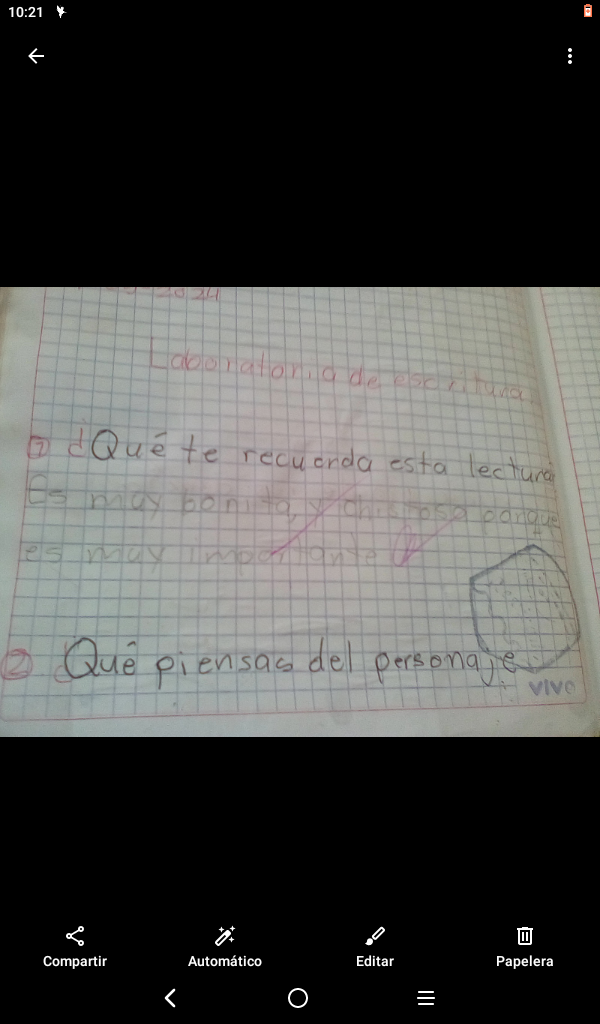 10:21
2024
Laboratorio de escritura
1 ¿Qué te recuerda esta lectura
Es muy bonita, y chistosa porque
es muy importante
2 Qué piensas del personaje
vivo
Compartir
Automático
Editar
Papelera